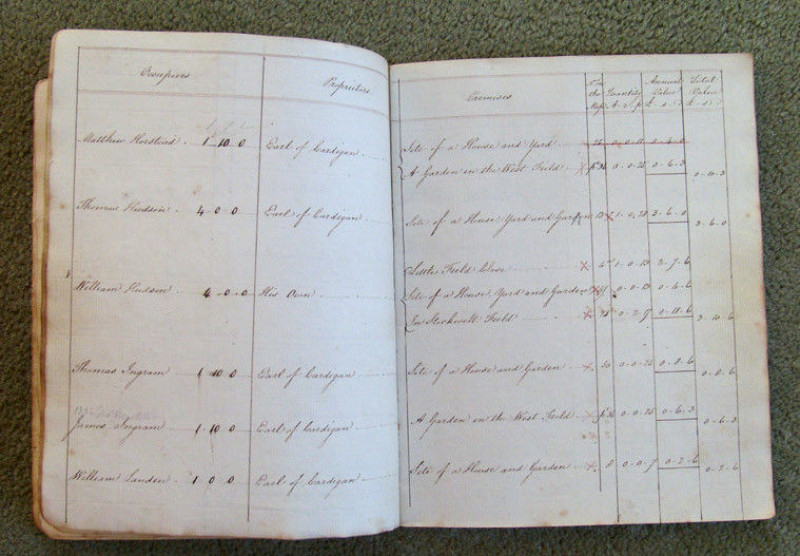 Occupiers
Proprietors
Premises
the Map
Quantity
A. R. P.
Annual Value
£. S. D.
Total Value
£. S. D.
Matthew 1 10 0 Earl of Cardigan
Site of a House and Yard 0-6-0
A Garden in the West Field 0-0-26 0-6-3 0-10-3
Thomas Hudson 4-0-0 Earl of Cardigan
Site of a House Yard and Garden 3-6-0 3-6-0
Little Field Close 2-7-6
William Hudson 4-0-0 His Own
Site of a House Yard and Garden 0-0-13
In Stockwell Field 0-11-6 3-10-6
Thomas Ingram 1 10 0 Earl of Cardigan
Site of a House and Garden 0-0-26 0-0-6 0-0-6
James Ingram 1 10 0 Earl of Cardigan
A Garden in the West Field 0-0-26 0-6-3 0-6-3
William 1 0 0 Earl of Cardigan
Site of a House and Garden 8 0-0-7 0-2-6 0-2-6